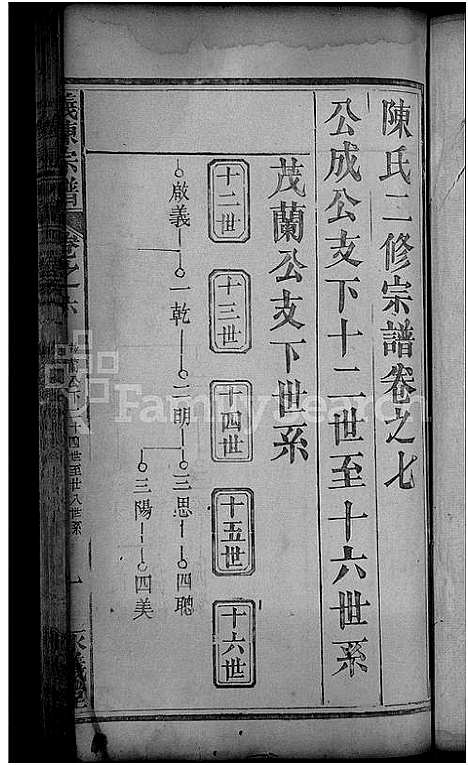 陳氏二修宗譜卷之七
公成公支下十二世至十六世系
茂蘭公支下世系
十二世
十三世
十四世
十五世
十六世
啟義 一乾 二明 三思 四聰
三陽 四美
義陳宗譜 卷之六
蘭公下十四世至廿八世系
FamilySearch